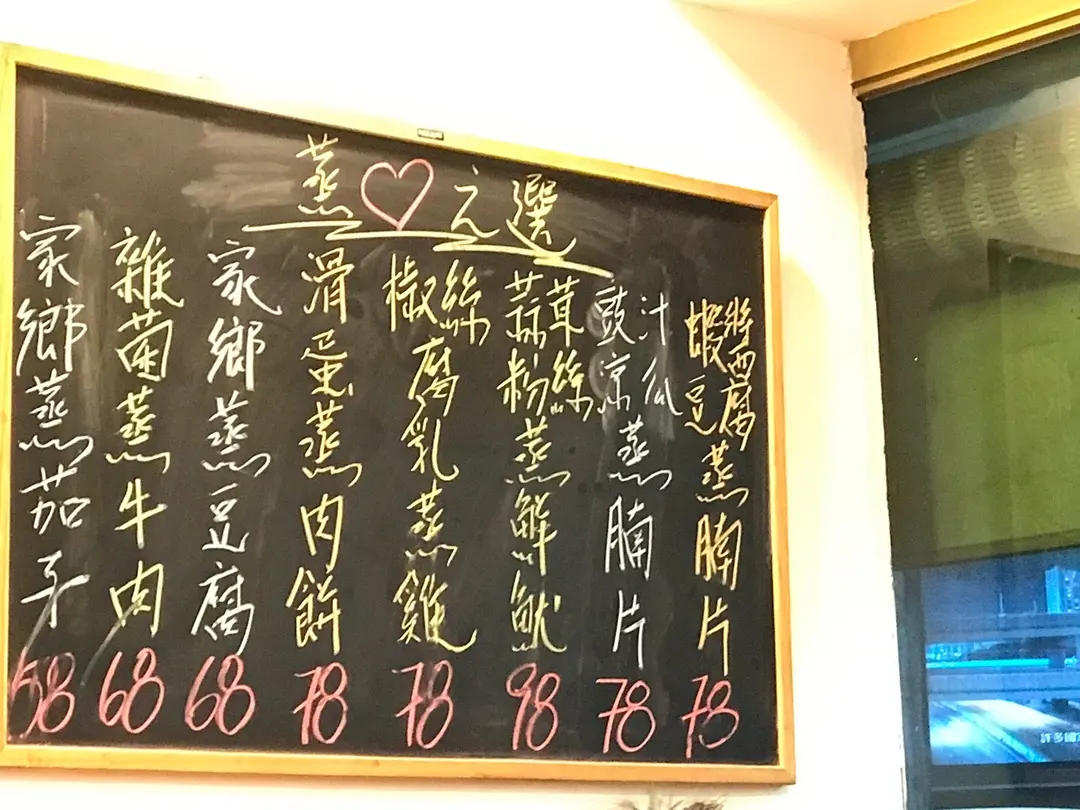 蒸♡之選
蝦醬豆腐蒸腩片 78
豉汁涼瓜蒸腩片 78
蒜茸粉絲蒸鮮魷 98
椒絲腐乳蒸雞 78
滑蛋蒸肉餅 78
家鄉蒸豆腐 68
雜菌蒸牛肉 68
家鄉蒸茄子 58
許多國